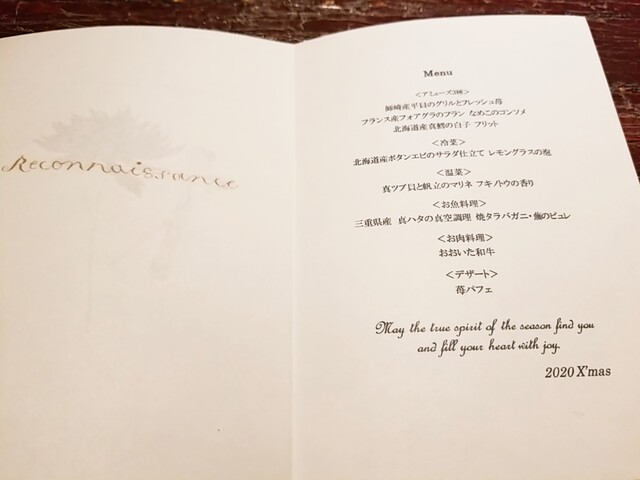 Reconnaissance
Menu
＜アミューズ3種＞
産平目のグリルとフレッシュ苺
フランス産フォアグラのフラン なめこのコンソメ
北海道産真鱈の白子 フリット
＜冷菜＞
北海道産ボタンエビのサラダ仕立て レモングラスの泡
＜温菜＞
真ツブ貝と帆立のマリネ フキノトウの香り
＜お魚料理＞
三重県産 真ハタの真空調理 焼タラバガニ・蕪のピュレ
＜お肉料理＞
おおいた和牛
＜デザート＞
苺パフェ
May the true spirit of the season find you
and fill your heart with joy.
2020 X'mas